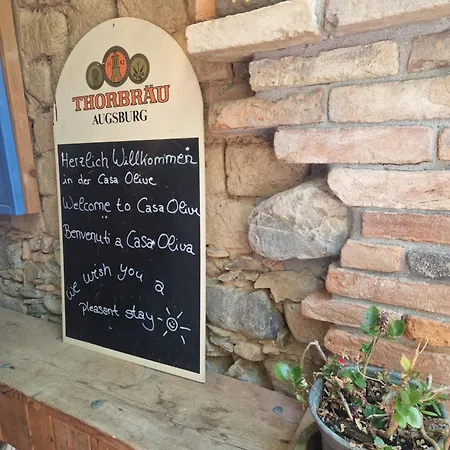 THORBRÄU
AUGSBURG
Herzlich Willkommen
in der Casa Olive
Welcome to Casa Olive
Benvenuti a Casa Oliva
We wish you a
pleasant stay -